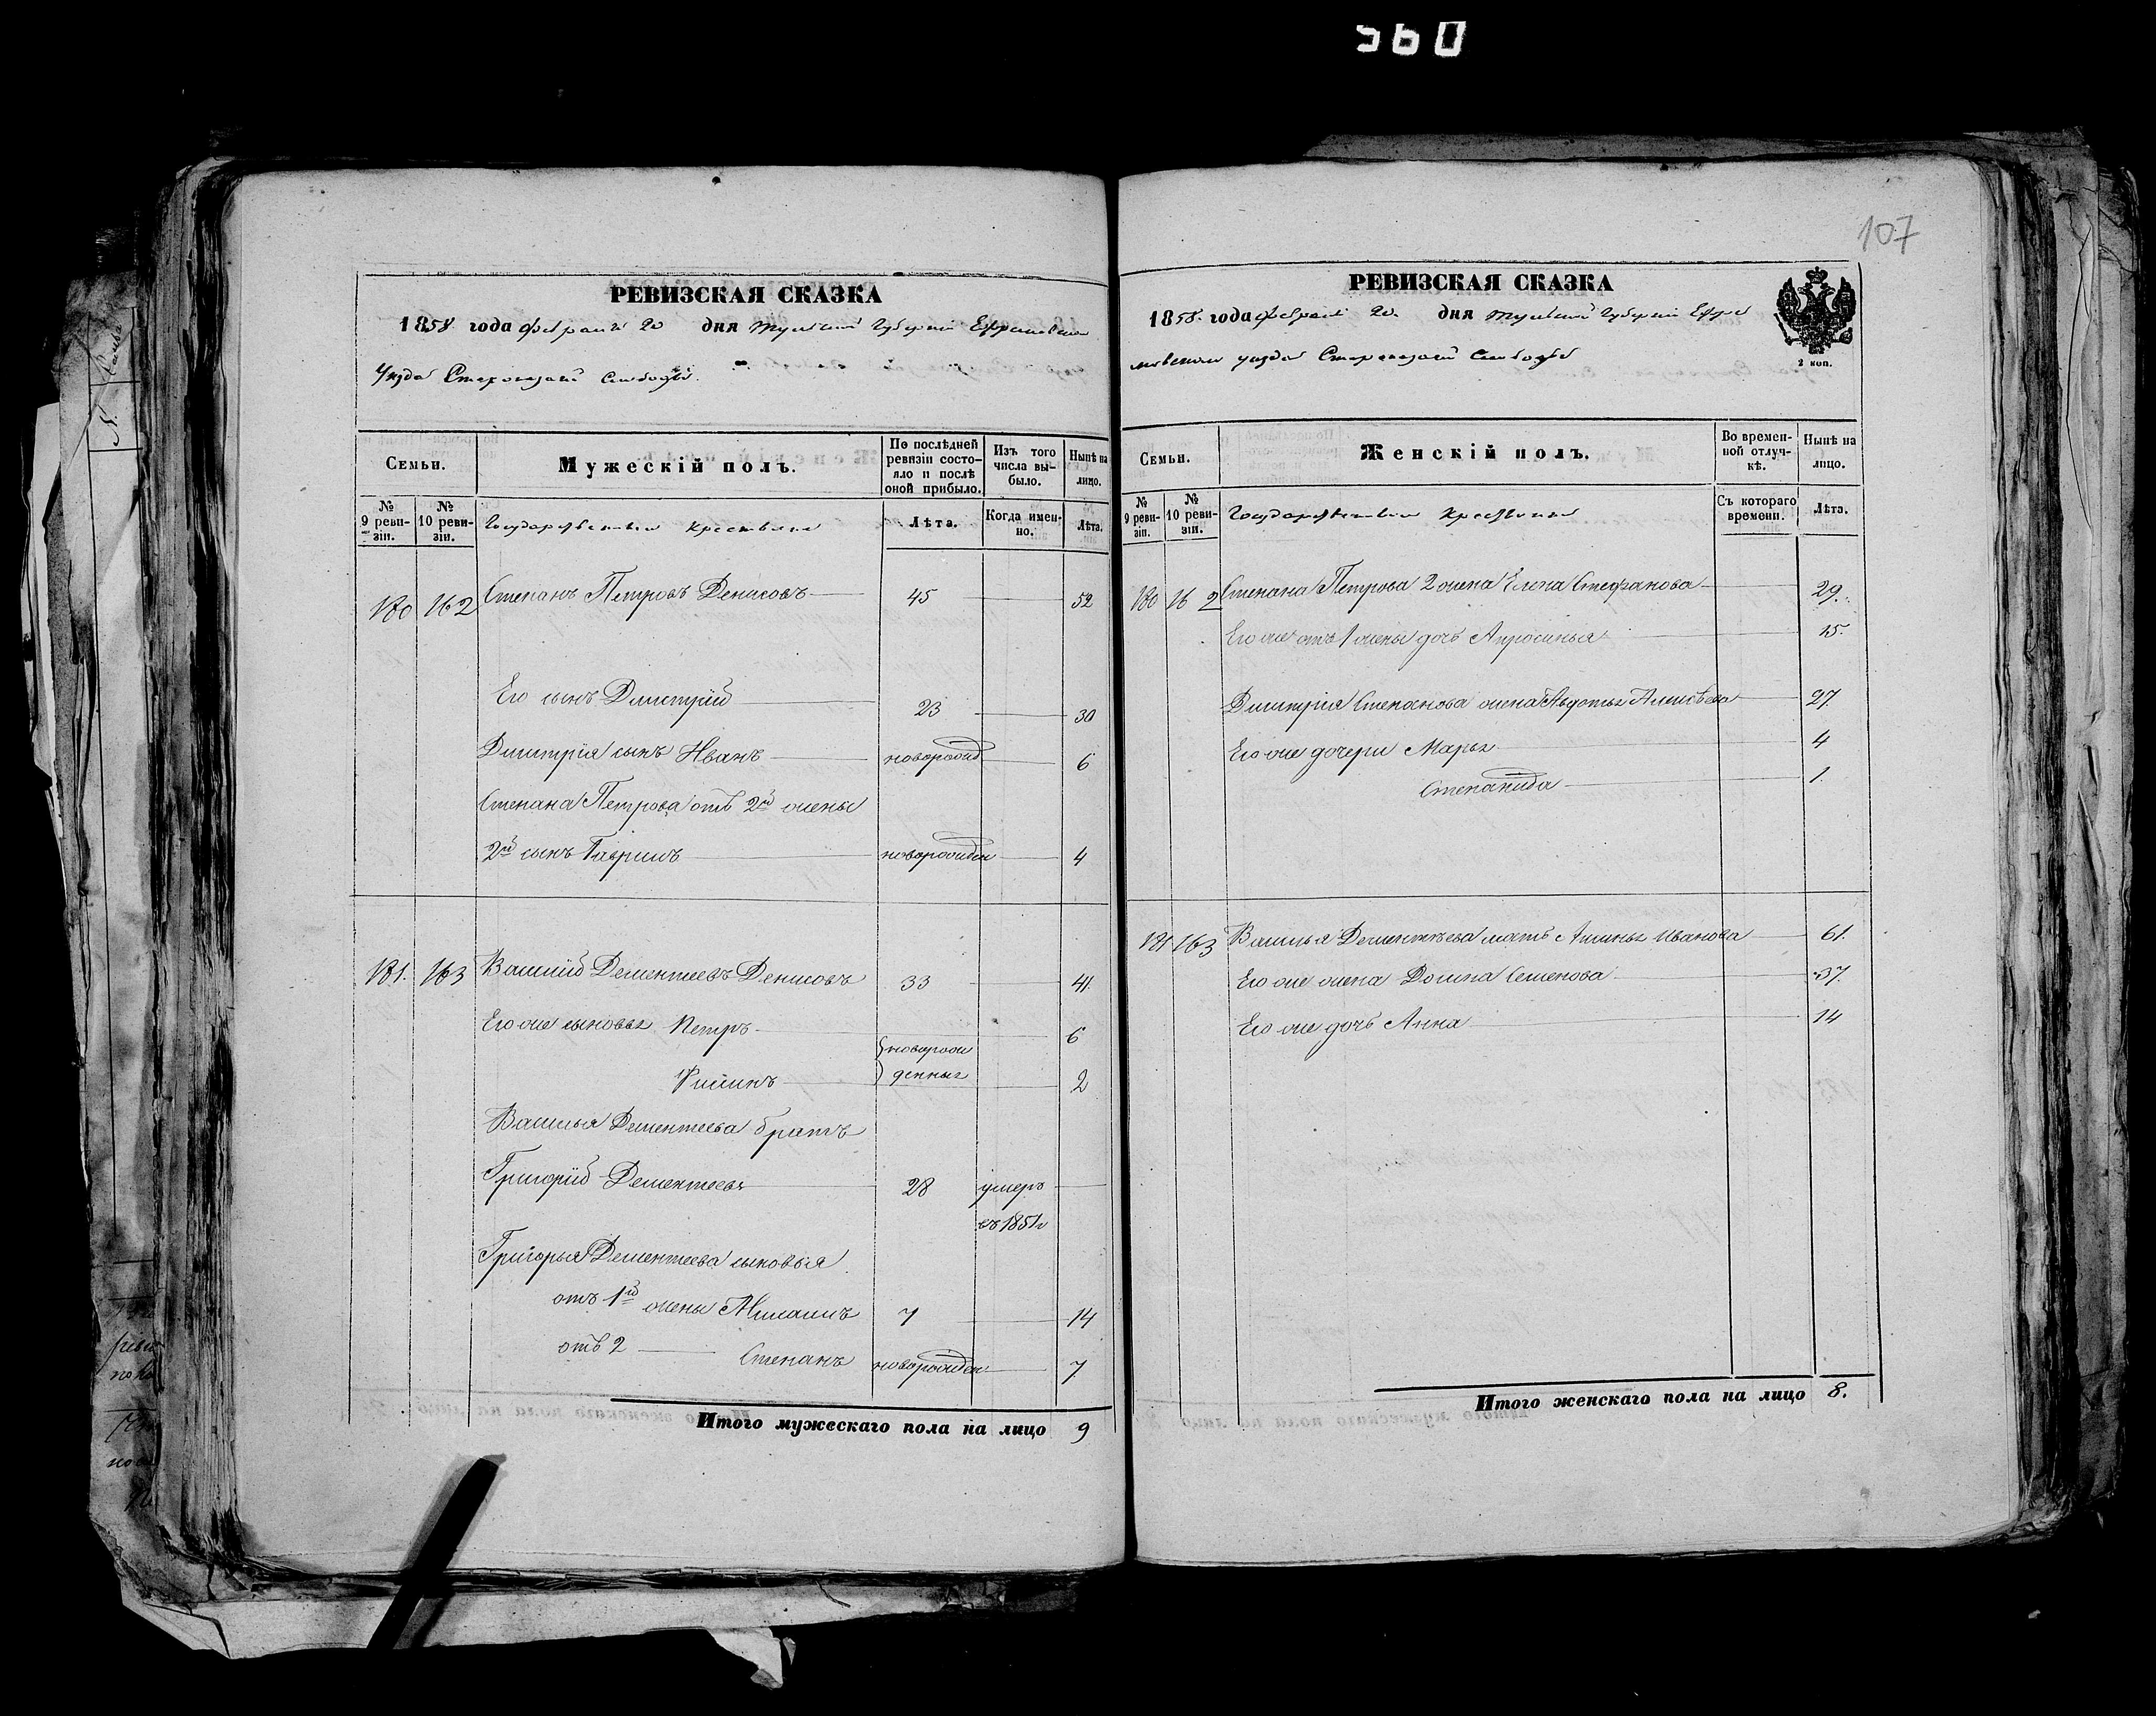 360
РЕВИЗСКАЯ СКАЗКА
1858 года февраля 20 дня Тульской Губернiи Ефремовскаго
Уѣзда Староказачей слободы.
Семьи.
Мужескiй полъ.
По послѣдней ревизiи состояло и послѣ оной прибыло.
Изъ того числа выбыло.
Нынѣ на лицо.
№ 9 ревизiи.
№ 10 ревизiи.
Государственные крестьяне
Лѣта.
Когда именно.
Лѣта.
180 162 Степанъ Петровъ Денисовъ 45 52
Его сынъ Дмитрiй 23 30
Дмитрiя сынъ Иванъ новорожд 6
Степана Петрова отъ 2й жены
2й сынъ Гаврилъ новорожден 4
181. 163 Василiй Дементеевъ Денисовъ 33 41.
Его же сыновья Петръ 6
новорож
денныя
2
Василья Дементеева братъ
Григорiй Дементеевъ 28 умеръ
въ 1851г
Григорья Дементеева сыновья
отъ 1й жены 7 14
отъ 2 Степанъ новорожден: 7
Итого мужескаго пола на лицо 9
107
РЕВИЗСКАЯ СКАЗКА
1858. года февраля 20. дня Тульской Губернiи Ефре
мовскаго уѣзда Староказачей слободы
2 коп.
Семьи.
Женскiй полъ.
Во временной отлучкѣ.
Нынѣ на лицо.
№ 9 ревизiи.
№ 10 ревизiи.
Государственные крестьянки
Съ котораго времени.
Лѣта.
180 162 Степана Петрова 2 жена Елена Стефанова 29.
Его же отъ 1 жены дочь Апросинья 15.
Дмитрiя Степанова жена Авдотья Алексѣева 27
Его же дочери Марья 4
Степанида 1.
181 163 Василья Дементьева мать Аксинья Иванова 61.
Его же жена Домна Семенова 37.
Его же дочь Анна 14
Итого женскаго пола на лицо 8.